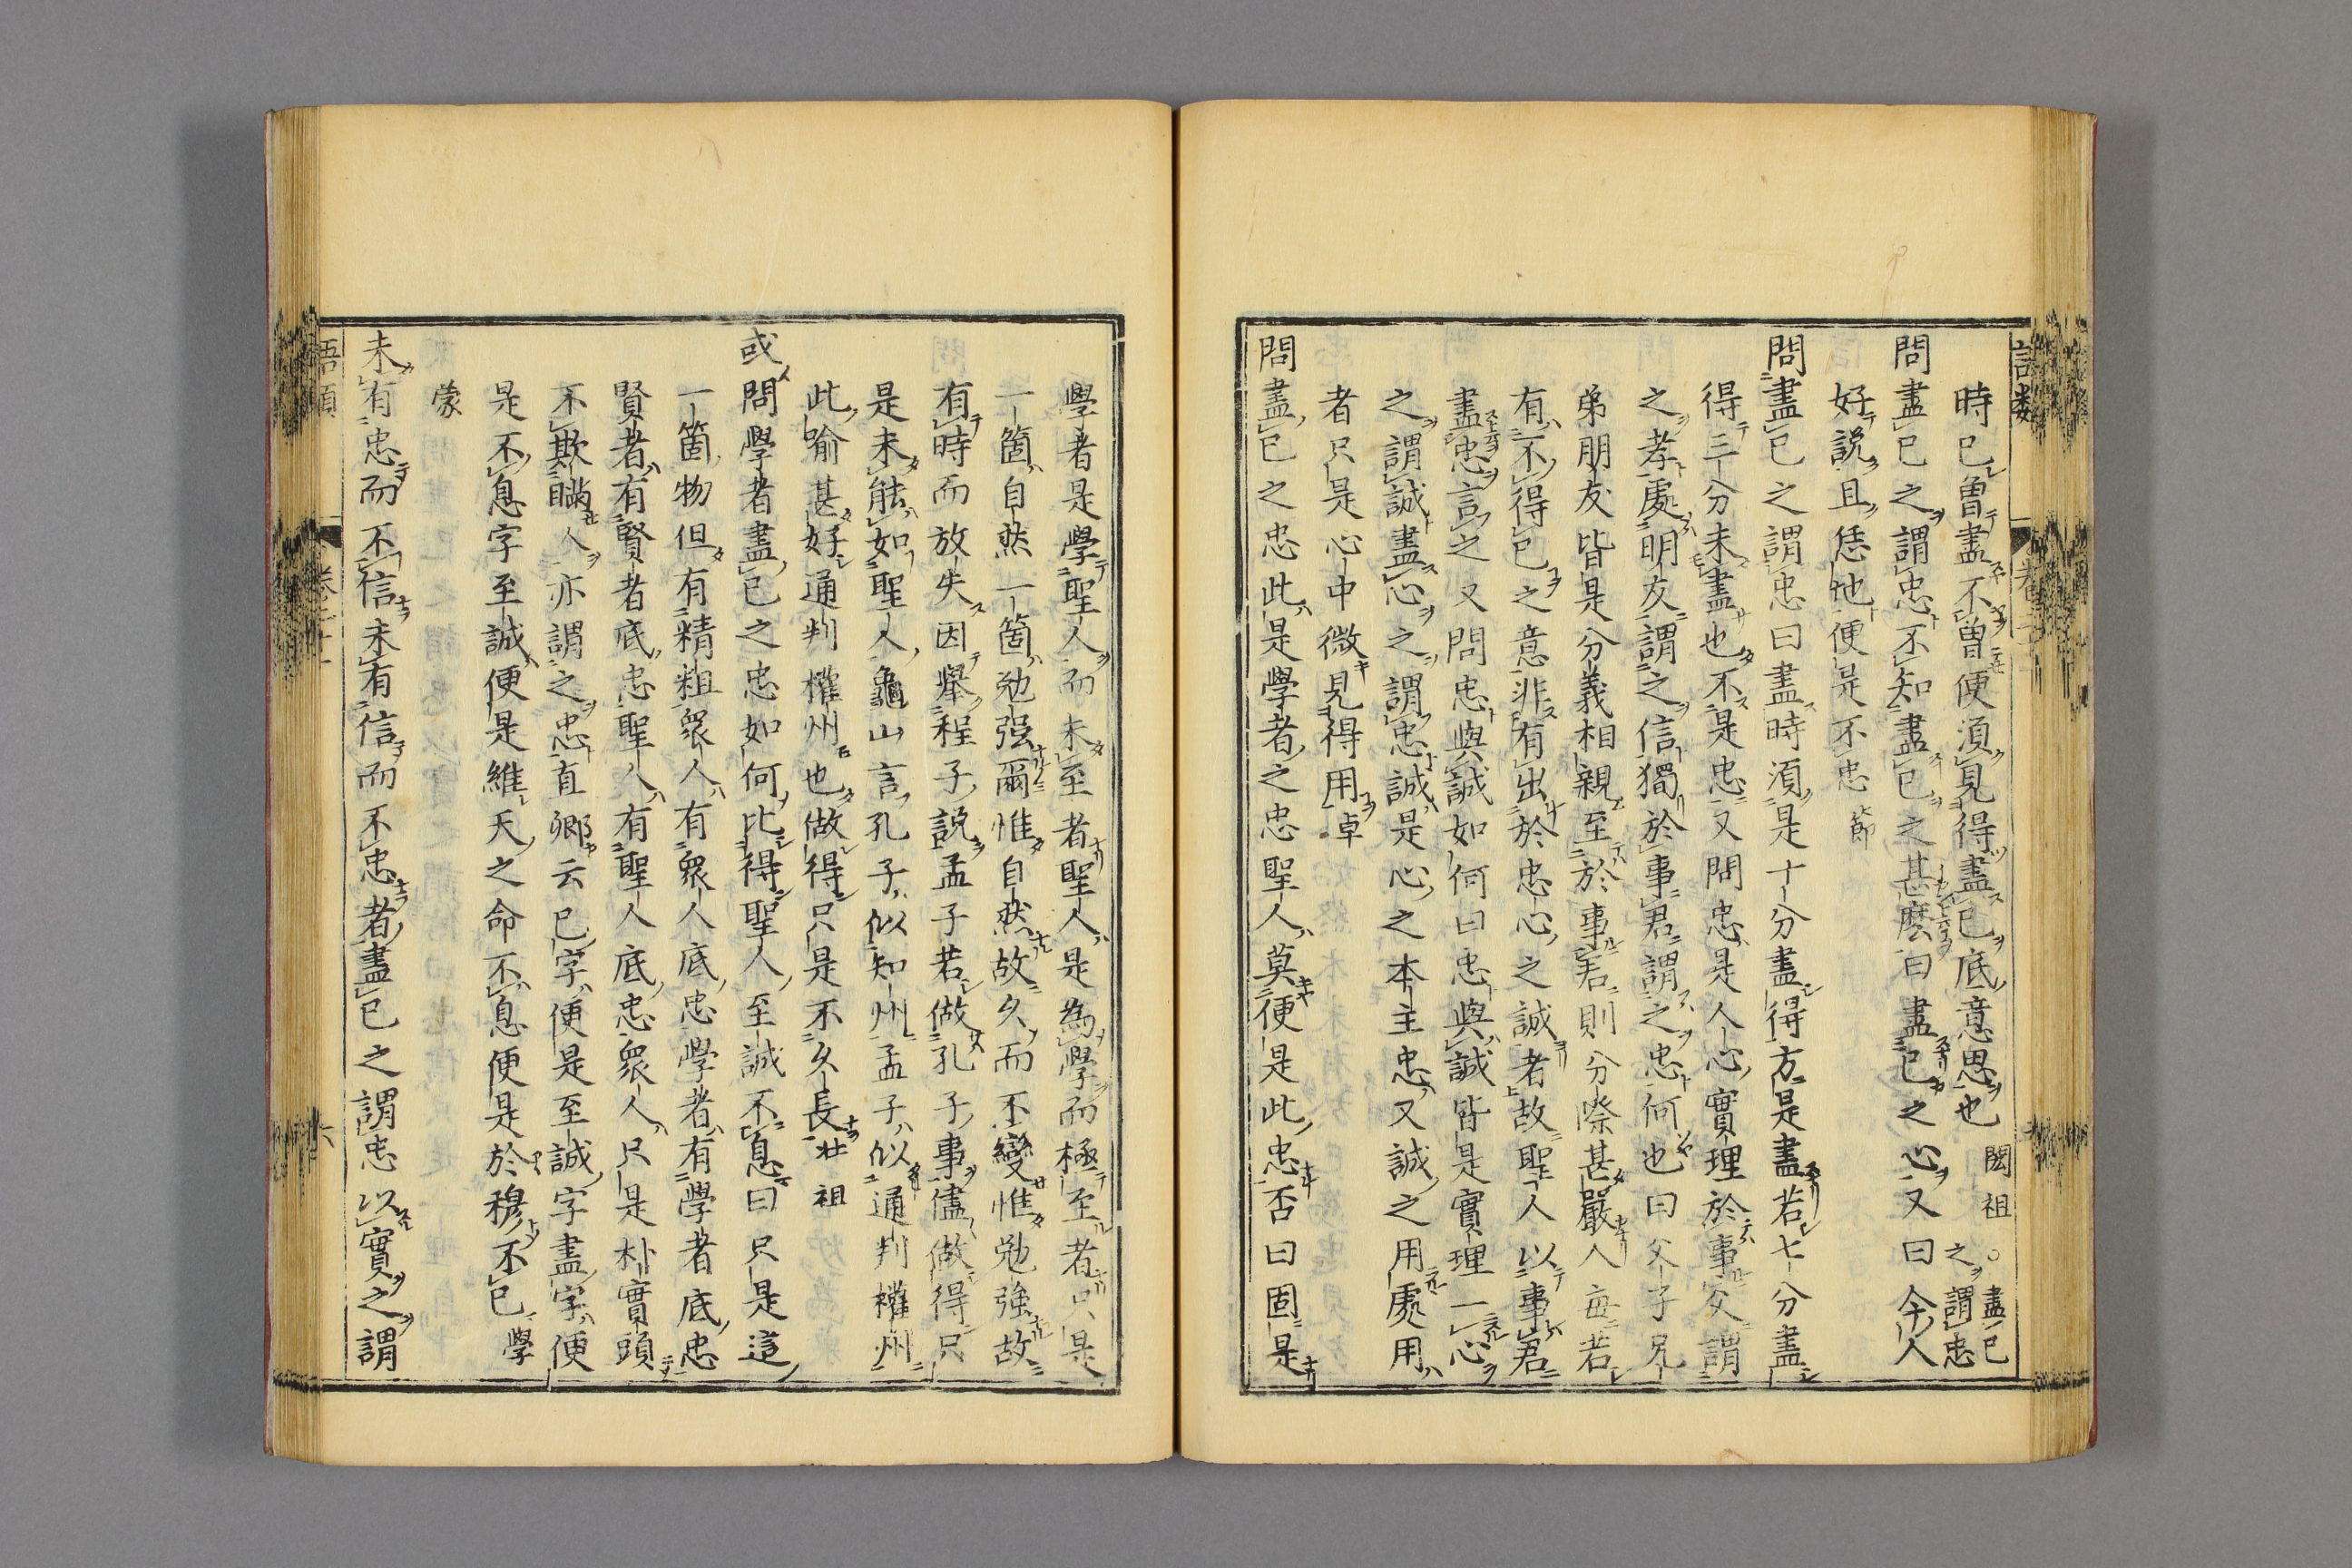 時已曾盡不曾便須見得盡已底意思也 閎祖○盡已之謂忠
問盡已之謂忠不知盡已之甚麽曰盡已之心又曰今人
好說且恁地便是不忠 節
問盡已之謂忠曰盡時須是十分盡得方是盡若七分盡
得三分未盡也不是忠又問忠是人心實理於事父謂
之孝處明友謂之信獨於事君謂之忠何也曰父子兄
弟朋友皆是分義相親至於事君則分際甚嚴人每若
有不得已之意非有出於忠心之誠者故聖人以事君
盡忠言之又問忠與誠如何曰忠與誠皆是實理一心
之謂誠盡心之謂忠誠是心之本主忠又誠之用處用
者只是心中微見得用 卓
問盡已之忠此是學者之忠聖人莫便是此忠否曰固是
學者是學聖人而未至者聖人是為學而極至者只是
一箇自然一箇勉强爾惟自然故久而不變惟勉強故
有時而放失因舉程子說孟子若做孔子事儘做得只
是未能如聖人龜山言孔子似知州孟子似通判權州
此喻甚好通判權州也做得只是不久長 壯祖
或問學者盡已之忠如何比得聖人至誠不息曰只是這
一箇物但有精粗衆人有衆人底忠學者有學者底忠
賢者有賢者底忠聖人有聖人底忠衆人只是朴實頭
不欺瞞人亦謂之忠直卿云已字便是至誠字盡字便
是不息字至誠便是維天之命不息便是於穆不已 學
蒙
未有忠而不信未有信而不忠者盡已之謂忠以實之謂